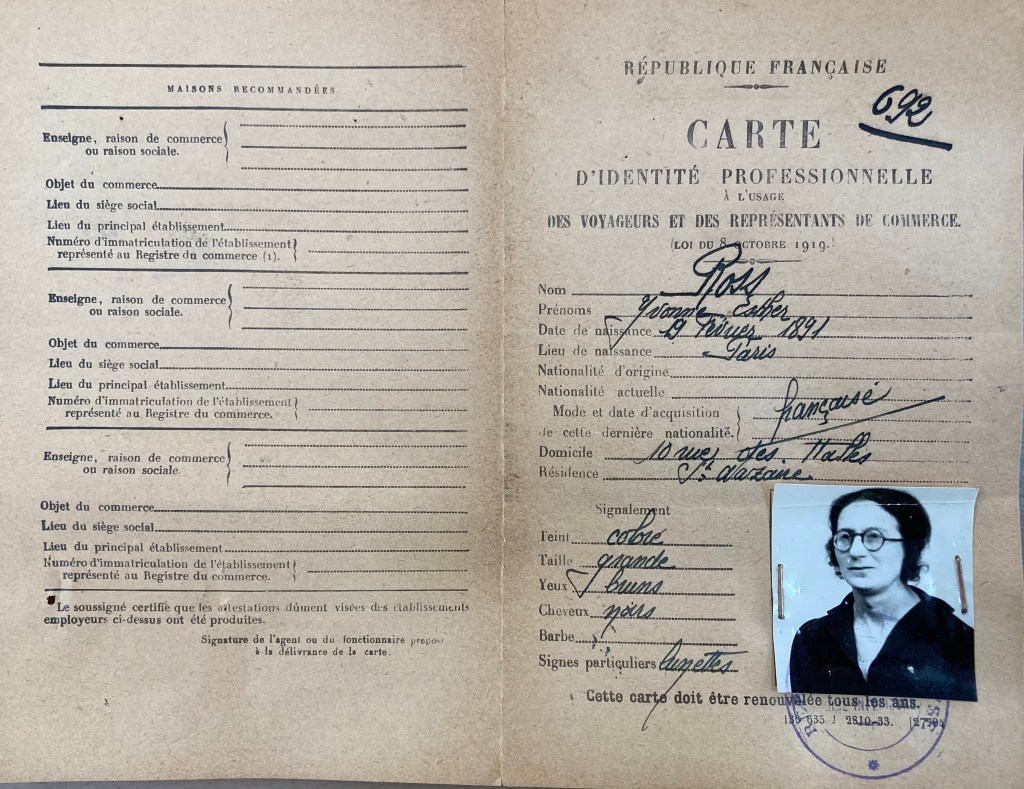 MAISONS RECOMMANDÉES
Enseigne, raison de commerce
ou raison sociale.
Objet du commerce
Lieu du siège social
Lieu du principal établissement
Numéro d'immatriculation de l'établissement
représenté au Registre du commerce (1).
Enseigne, raison de commerce
ou raison sociale.
Objet du commerce
Lieu du siège social
Lieu du principal établissement
Numéro d'immatriculation de l'établissement
représenté au Registre du commerce.
Enseigne, raison de commerce
ou raison sociale.
Objet du commerce
Lieu du siège social
Lieu du principal établissement
Numéro d'immatriculation de l'établissement
représenté au Registre du commerce.
Le soussigné certifie que les attestations dûment visées des établissements
employeurs ci-dessus ont été produites.
Signature de l'agent ou du fonctionnaire
à la délivrance de la carte.
RÉPUBLIQUE FRANÇAISE
692
CARTE
D'IDENTITÉ PROFESSIONNELLE
À L'USAGE
DES VOYAGEURS ET DES REPRÉSENTANTS DE COMMERCE.
(LOI DU 8 OCTOBRE 1919.)
Nom Ross
Prénoms Yvonne Esther
Date de naissance 9 Février 1891
Lieu de naissance Paris
Nationalité d'origine
Nationalité actuelle
Mode et date d'acquisition française
de cette dernière nationalité.
Domicile 10 rue des Halles
Résidence St Nazaire
Signalement
Teint
Taille grande
Yeux bruns
Cheveux noirs
Barbe
Signes particuliers lunettes
Cette carte doit être renouvelée tous les ans.
2810-33.